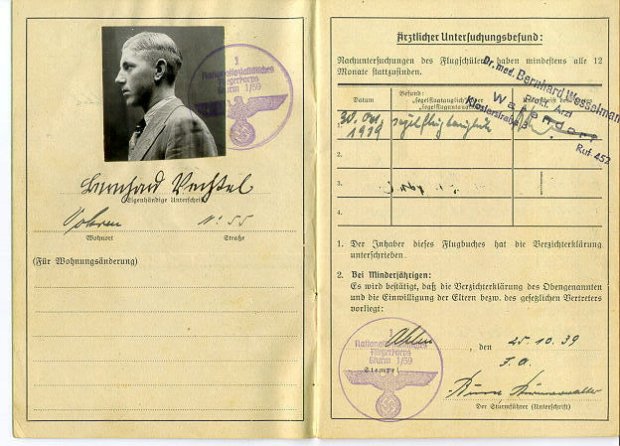 1
Nationalsozialistisches
Fliegerkorps
Sturm 1/59
Bernhard Vechtel
Eigenhändige Unterschrift
Vohren
Nr 55
Wohnort Straße
(Für Wohnungsänderung)
Ärztlicher Untersuchungsbefund:
Nachuntersuchungen des Flugschülers haben mindestens alle 12
Monate stattzufinden.
Dr. med. Bernhard Wesselmann
prakt. Arzt
Warendorf
Klosterstraße 3
Ruf 452
Datum Befund:
„segelflugtauglich“ oder
„segelfluguntauglich“
1. 30. Okt. 1939 segelflugtauglich
2.
3.
4.
1. Der Inhaber dieses Flugbuches hat die Verzichterklärung
unterschrieben.
2. Bei Minderjährigen:
Es wird bestätigt, daß die Verzichterklärung des Obengenannten
und die Einwilligung der Eltern bezw. des gesetzlichen Vertreters
vorliegt:
1
Nationalsozialistisches
Fliegerkorps
Sturm 1/59
Ahlen den 25.10.39
Stempel
Der Sturmführer (Unterschrift)